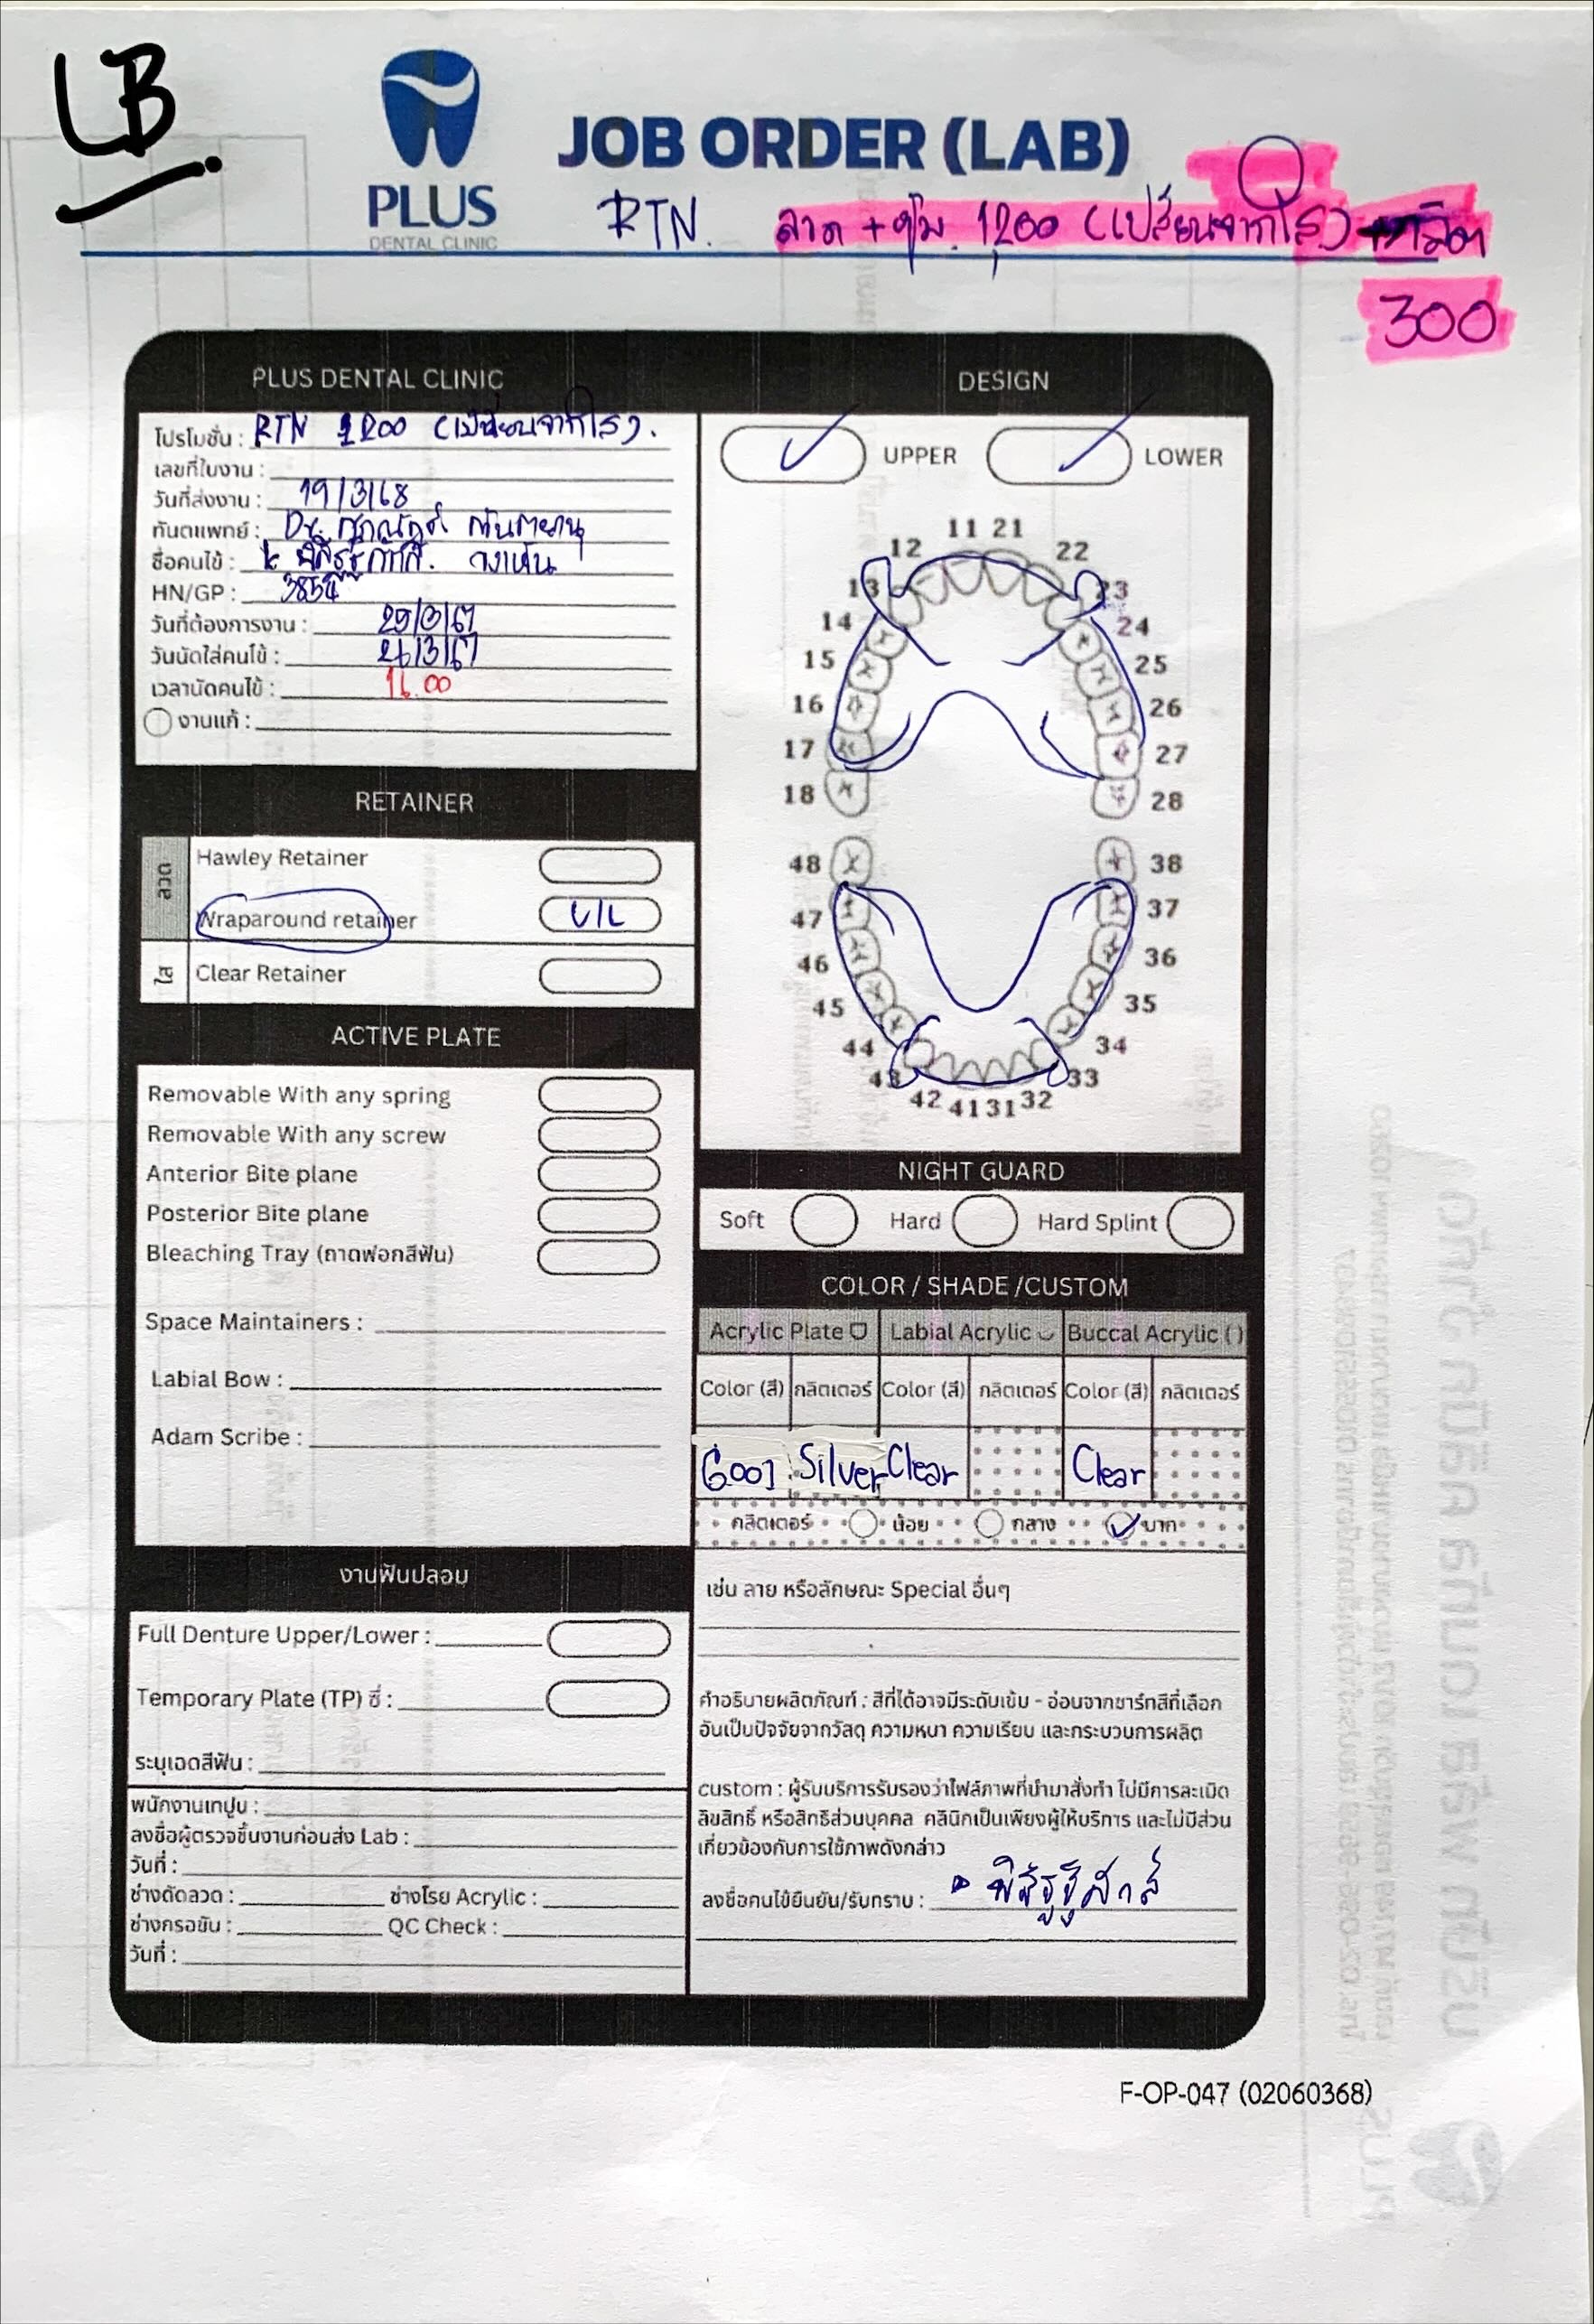 LB
PLUS
DENTAL CLINIC
JOB ORDER (LAB)
RTN. ลวด + ปั๊ม 1,200 (เปลี่ยนจากใส)
300
PLUS DENTAL CLINIC
โปรโมชั่น : RTN 1200 (เปลี่ยนจากใส).
เลขที่ใบงาน :
วันที่ส่งงาน : 19/3/68
ทันตแพทย์ : Dr.
ชื่อคนไข้ :
HN/GP :
วันที่ต้องการงาน : 25/3/67
วันนัดใส่คนไข้ : 26/3/67
เวลานัดคนไข้ : 16.00
งานแก้ :
RETAINER
ลวด
Hawley Retainer
Wraparound retainer U/L
ใส
Clear Retainer
ACTIVE PLATE
Removable With any spring
Removable With any screw
Anterior Bite plane
Posterior Bite plane
Bleaching Tray (ถาดฟอกสีฟัน)
Space Maintainers :
Labial Bow :
Adam Scribe :
งานฟันปลอม
Full Denture Upper/Lower :
Temporary Plate (TP) ซี่ :
ระบุเฉดสีฟัน :
พนักงานเทปูน :
ลงชื่อผู้ตรวจชิ้นงานก่อนส่ง Lab :
วันที่ :
ช่างดัดลวด : ช่างโรย Acrylic :
ช่างกรอขัน : QC Check :
วันที่ :
DESIGN
UPPER LOWER
11 21
12 22
13 23
14 24
15 25
16 26
17 27
18 28
48 38
47 37
46 36
45 35
44 34
43 33
42 41 31 32
NIGHT GUARD
Soft Hard Hard Splint
COLOR / SHADE /CUSTOM
Acrylic Plate Labial Acrylic Buccal Acrylic ( )
Color (สี) กลิตเตอร์ Color (สี) กลิตเตอร์ Color (สี) กลิตเตอร์
G001 Silver Clear Clear
กลิตเตอร์ น้อย กลาง มาก
เช่น ลาย หรือลักษณะ Special อื่นๆ
คำอธิบายผลิตภัณฑ์ : สีที่ได้อาจมีระดับเข้ม - อ่อนจากชาร์ทสีที่เลือก
อันเป็นปัจจัยจากวัสดุ ความหนา ความเรียบ และกระบวนการผลิต
custom : ผู้รับบริการรับรองว่าไฟล์ภาพที่นำมาสั่งทำ ไม่มีการละเมิด
ลิขสิทธิ์ หรือสิทธิส่วนบุคคล คลินิกเป็นเพียงผู้ให้บริการ และไม่มีส่วน
เกี่ยวข้องกับการใช้ภาพดังกล่าว
ลงชื่อคนไข้ยืนยัน/รับทราบ :
F-OP-047 (02060368)